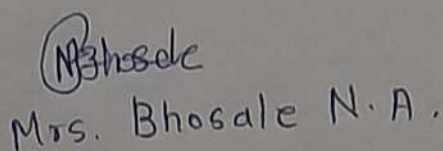 NBhosale
Mrs. Bhosale N.A.